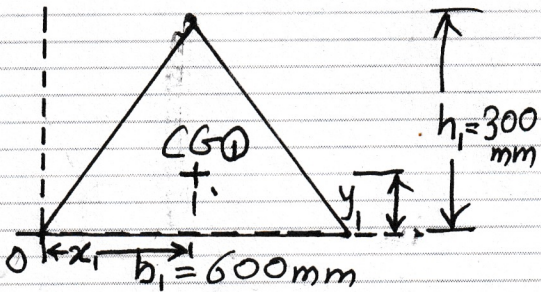 CG①
h₁=300
mm
y₁
O
x₁
b₁=600mm